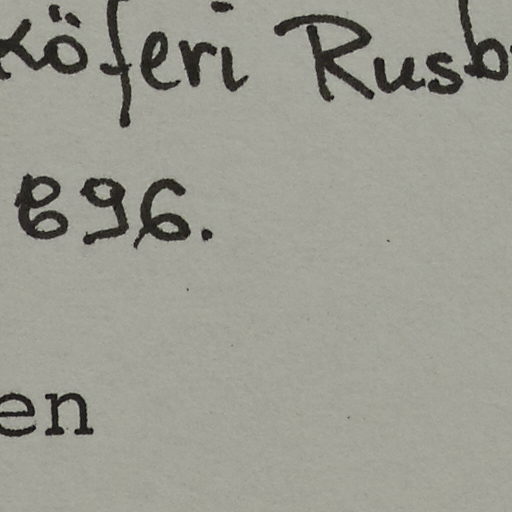 köferi Rusb
896.
en